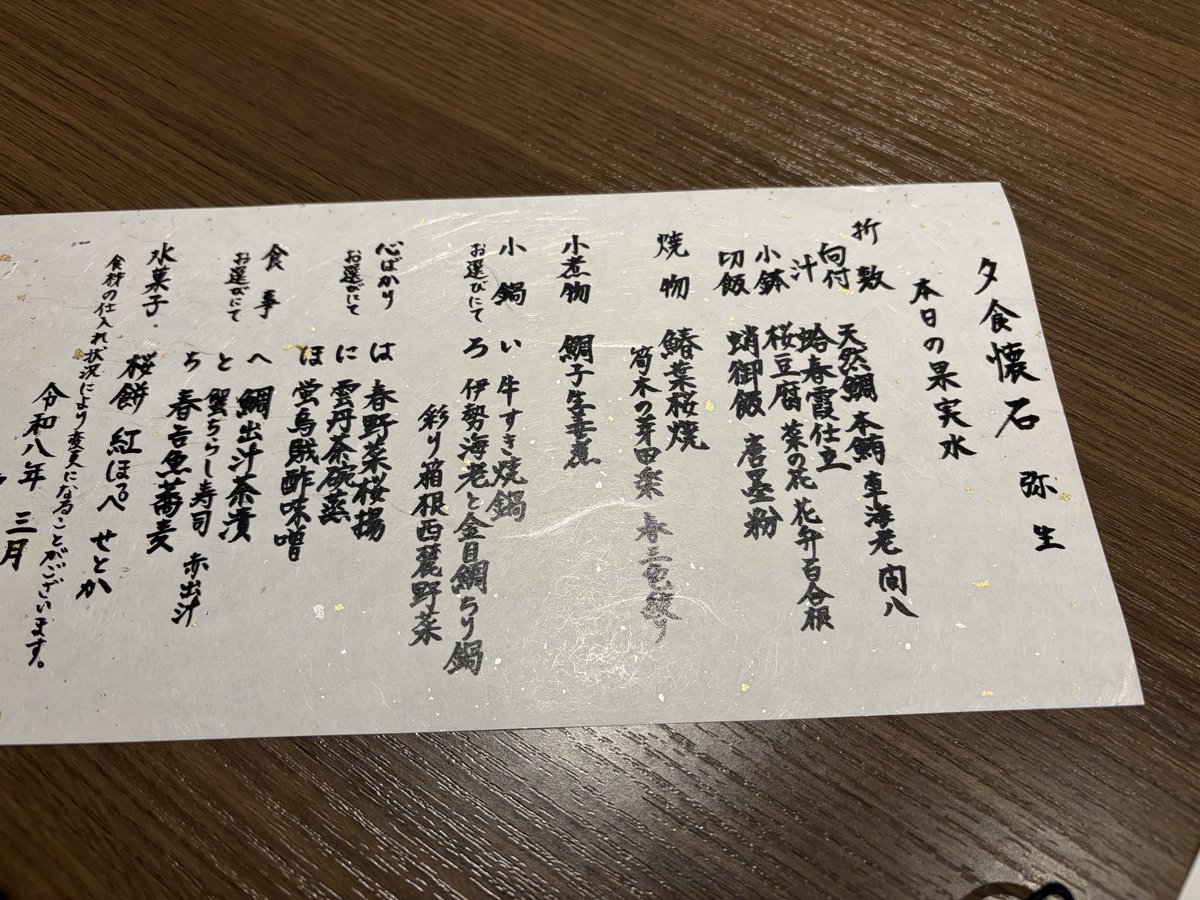 夕食懐石 弥生
本日の果実水
折敷
向付 天然鯛 本鮪 車海老 間八
汁 蛤春霞仕立
小鉢 桜豆腐 菜の花 花弁百合根
切飯 蛸御飯 唐墨粉
焼物 鰆葉桜焼
筍木の芽田楽 春三色餃り
小煮物 鯛子生姜煮
小鍋 い 牛すき焼鍋
お選びにて ろ 伊勢海老と金目鯛ちり鍋
彩り箱根西麓野菜
心ばかり は 春野菜桜揚
お選びにて に 雲丹茶碗蒸
ほ 蛍烏賊酢味噌
食事 へ 鯛出汁茶漬
お選びにて と 蟹ちらし寿司 赤出汁
ち 春告魚蕎麦
水菓子 桜餅 紅ほっぺ せとか
食材の仕入れ状況により変更になることがございます。
令和八年 三月